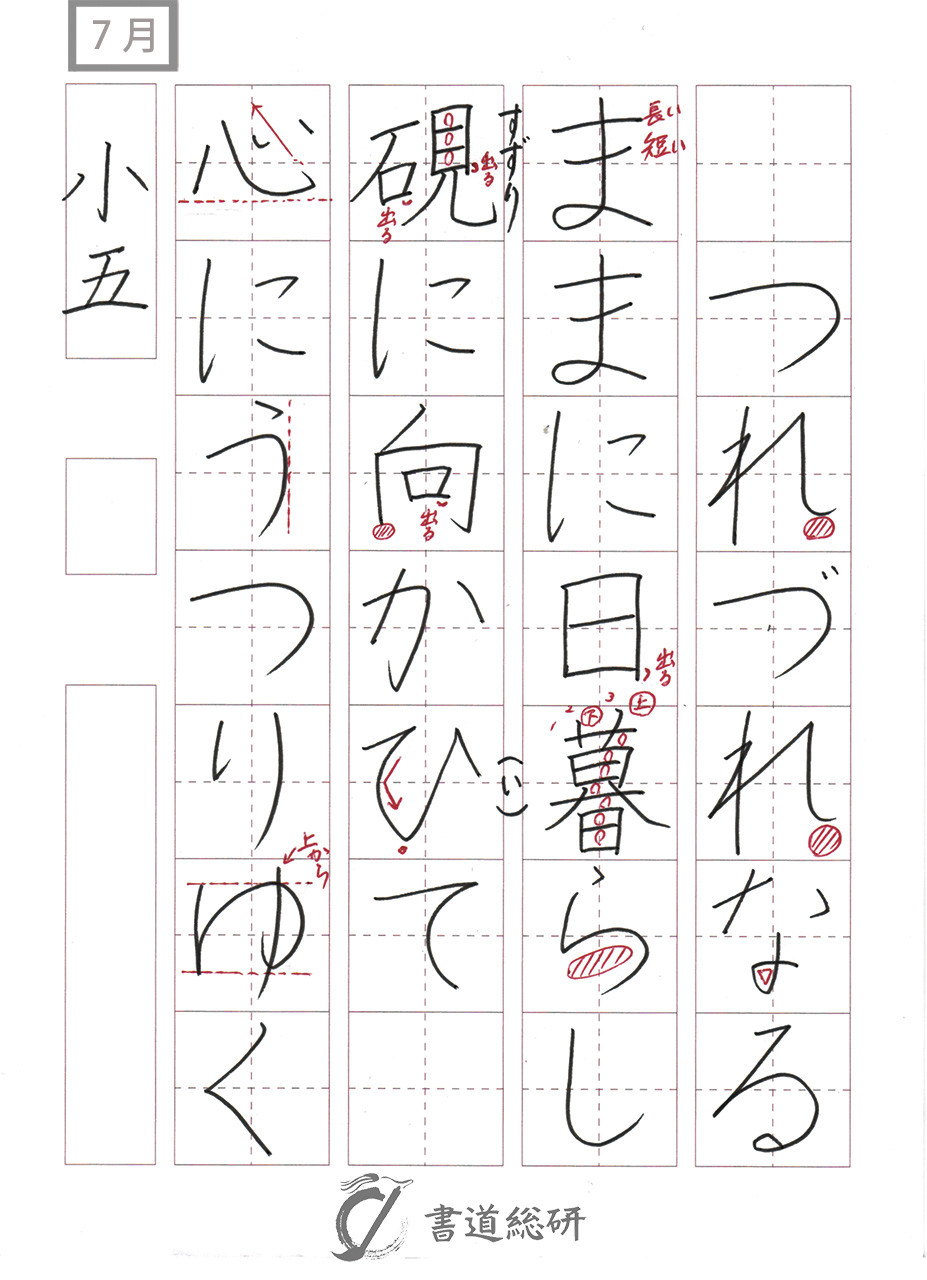 7月
つれづれなる
ままに日暮らし
長い
短い
出る
1 2 3
下
上
硯に向かひて
すずり
出る
出る
出る
(い)
心にうつりゆく
上から
小五
書道総研